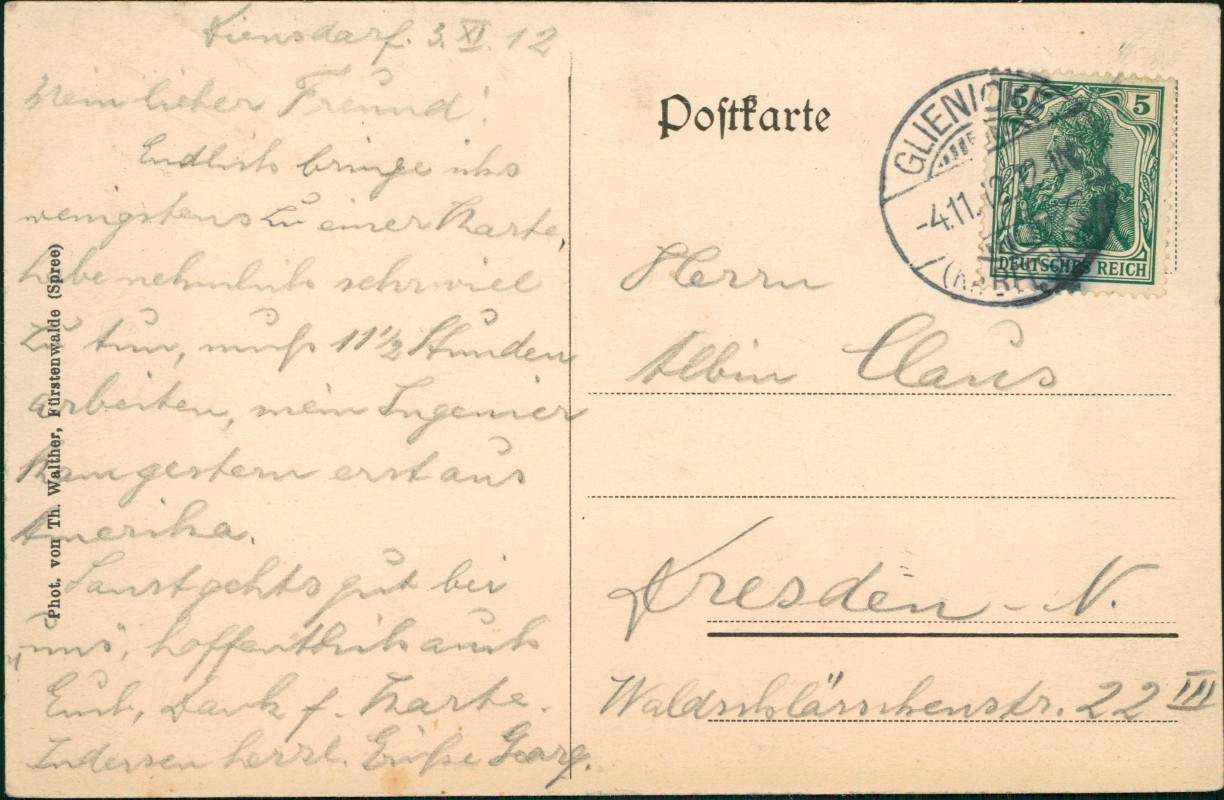 3. XI. 12
Mein lieber Freund!
Endlich bringe ichs
wenigstens zu einer Karte,
habe nehmlich sehr viel
zu tun, muß 11½ Stunden
arbeiten, mein Ingenier
kam gestern erst aus
Amerika.
Sonst gehts gut bei
„uns", hoffentlich auch
Euch, Dank f. Karte.
Indessen herzl. Grüße Georg.
Phot. von Th. Walther, Fürstenwalde (Spree)
Postkarte
GLIENICKE
-4.11.12
5 5
DEUTSCHES REICH
Herrn
Albin Claus
Dresden - N.
Waldschlösschenstr. 22 III